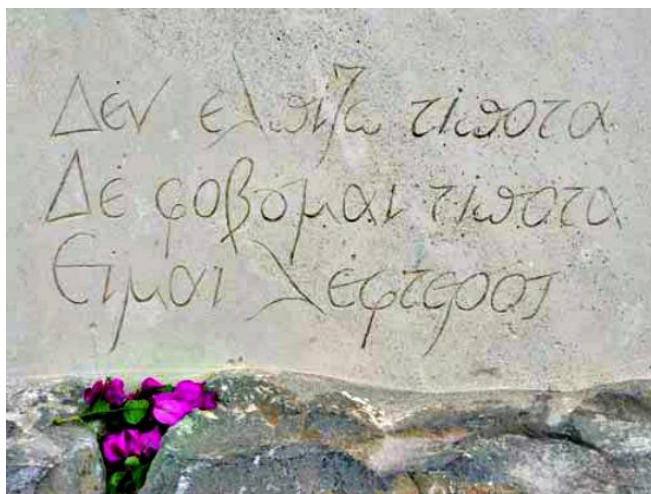 Δεν ελπίζω τίποτα
Δε φοβομαι τίποτα
Ειμαι λεφτερος